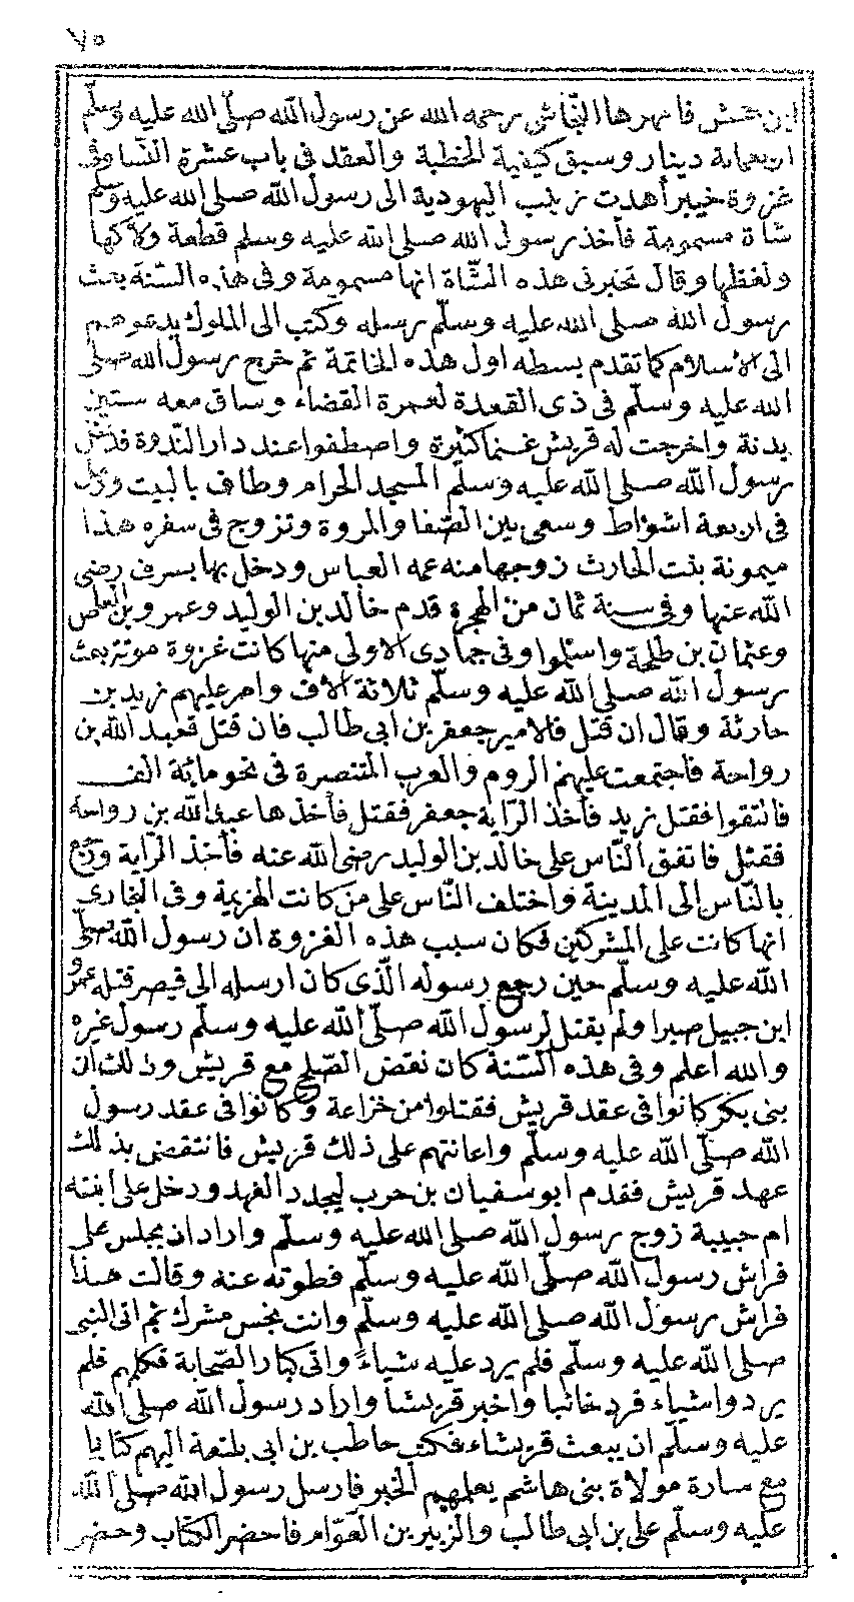 ٧٥
ابن جحش فامهرها النجاشي رحمه الله عن رسول الله صلّى الله عليه وسلّم
اربعماية دينار وسبق كيفية الخطبة والعقد في باب عشرة النسا وفي
غزوة خيبر أهدت زينب اليهودية الى رسول الله صلى الله عليه وسلم
شاة مسمومة فأخذ رسول الله صلى الله عليه وسلم قطعة ولاكها
ولفظها وقال تخبرني هذه الشّاة انها مسمومة وفي هذه السّنة بعث
رسول الله صلى الله عليه وسلّم رسله وكتب الى الملوك يدعوهم
الى الاسلام كما تقدم بسطه اول هذه الخاتمة ثم خرج رسول الله صلى
الله عليه وسلّم في ذى القعدة لعمرة القضاء وساق معه ستين
بدنة واخرجت له قريش غنما كثيرة واصطفوا عند دار النّدوة فدخل
رسول الله صلى الله عليه وسلّم المسجد الحرام وطاف بالبيت ورمل
في اربعة اشواط وسعى بين الصّفا والمروة وتزوج في سفره هذا
ميمونة بنت الحارث زوجها منه عمه العباس ودخل بها بسرف رضي
الله عنها وفي سنة ثمان من الهجرة قدم خالد بن الوليد وعمرو بن العاص
وعثمان بن طلحة واسلموا وفي جمادى الاولى منها كانت غزوة موتة بعث
رسول الله صلى الله عليه وسلّم ثلاثة الاف وامر عليهم زيد بن
حارثة وقال ان قتل فالامير جعفر بن ابي طالب فان قتل فعبد الله بن
رواحة فاجتمعت عليهم الروم والعرب المتنصرة في نحو مائة الف
فالتقوا فقتل زيد فأخذ الرّاية جعفر فقتل فأخذها عبد الله بن رواحة
فقتل فاتفق النّاس على خالد بن الوليد رضى الله عنه فأخذ الرّاية ورجع
بالنّاس الى المدينة واختلف النّاس على من كانت الهزيمة وفي البخارى
انها كانت على المشركين فكان سبب هذه الغزوة ان رسول الله صلّى
الله عليه وسلّم حين رجع رسوله الّذى كان ارسله الى قيصر قتله عمرو
ابن جبيل صبرا ولم يقتل لرسول الله صلّى الله عليه وسلّم رسول غيره
والله اعلم وفي هذه السّنة كان نقض الصّلح مع قريش وذلك ان
بني بكر كانوا في عقد قريش فقتلوا من خزاعة وكانوا في عقد رسول
الله صلّى الله عليه وسلّم واعانتهم على ذلك قريش فانتقض بذلك
عهد قريش فقدم ابو سفيان بن حرب ليجدد العهد ودخل على ابنته
ام حبيبة زوج رسول الله صلى الله عليه وسلّم واراد ان يجلس على
فراش رسول الله صلّى الله عليه وسلّم فطوته عنه وقالت هذا
فراش رسول الله صلى الله عليه وسلّم وانت نجس مشرك ثم اتى النبي
صلى الله عليه وسلّم فلم يرد عليه شياءً واتى كبار الصّحابة فكلهم فلم
يردوا شياء فرد خائبا واخبر قريشا واراد رسول الله صلى الله
عليه وسلّم ان يبعث قريشاء فكتب حاطب بن ابي بلتعة اليهم كتابا
مع سارة مولاة بنى هاشم يعلمهم الخبر فارسل رسول الله صلى الله
عليه وسلّم على بن ابي طالب والزبير بن العوّام فاحضر الكتاب وحضر